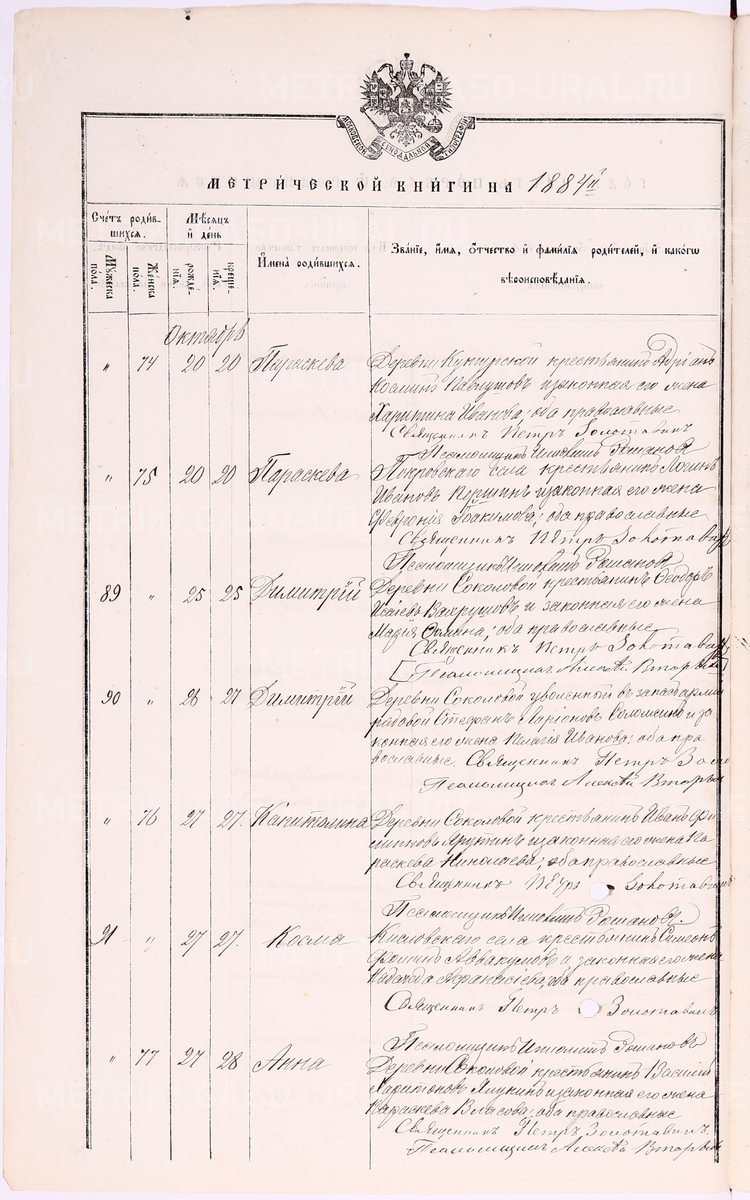 МОСКОВСКОЙ СѴНОДАЛЬНОЙ ТИПОГРАФІИ
МЕТРИ́ЧЕСКОЙ КНИ́ГИ НА 1884й
Сче́тъ роди́вшихся.
Мѣ́сяцъ и҆ де́нь
Имена̀ роди́вшихся.
Зва́нїе, и҆́мя, ѻ҆́тчество и҆ фами́лїя роди́телей, и҆ како́гѡ
вѣроисповѣ́данїя.
Му́жеска по́ла.
Же́нска по́ла.
рожде́нїя.
креще́нїя.
Октябрь
" 74 20 20 Параскева Деревни Кунгурской крестьянинъ Адріанъ
Косминъ Павлушовъ и законная его жена
Харитина Иванова; оба православные
Священникъ Петръ Золотавинъ
Псаломщикъ Рожановъ
" 75 20 20 Параскева Покровскаго села крестьянинъ Логинъ
Ивановъ Першинъ и законная его жена
Феврония Іоакимова; оба православные
Священникъ Петръ Золотавинъ
Псаломщикъ Рожановъ
89 " 25 25 Димитрій Деревни Соколовой крестьянинъ Ѳеодоръ
Исаіевъ Вахрушовъ и законная его жена
Марія Ѳомина; оба православные
Священникъ Петръ Золотавинъ
Псаломщикъ Алексѣй Вторыхъ
90 " 26 27 Димитрій Деревни Соколовой уволенной въ запасъ арміи
рядовой Стефанъ Иларіоновъ и за
конная его жена Пелагія Иванова; оба пра
вославные. Священникъ Петръ Золо
Псаломщикъ Алексѣй Вторыхъ
" 76 27 27. Капитолина Деревни Соколовой крестьянинъ Иванъ Фи
липповъ и законная его жена Па
раскева Николаева; оба православные
Священникъ Петръ Золотавинъ
Псаломщикъ Рожановъ.
91 " 27 27. Косма Кисловскаго села крестьянинъ Симеонъ
Фоминъ Аввакумовъ и законная его жена
Надежда Афанасіева; оба православные
Священникъ Петръ Золотавинъ
Псаломщикъ Рожановъ
" 77 27 28 Анна Деревни Соколовой крестьянинъ Василій
Харитоновъ и законная его жена
Параскева Власова; оба православные
Священникъ Петръ Золотавинъ.
Псаломщикъ Алексѣй Вторыхъ